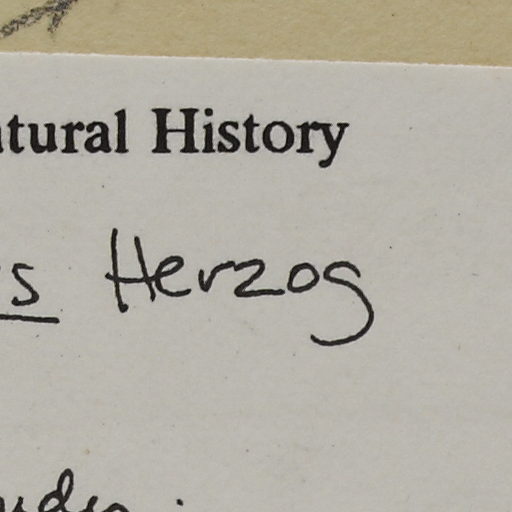 atural History
s Herzog